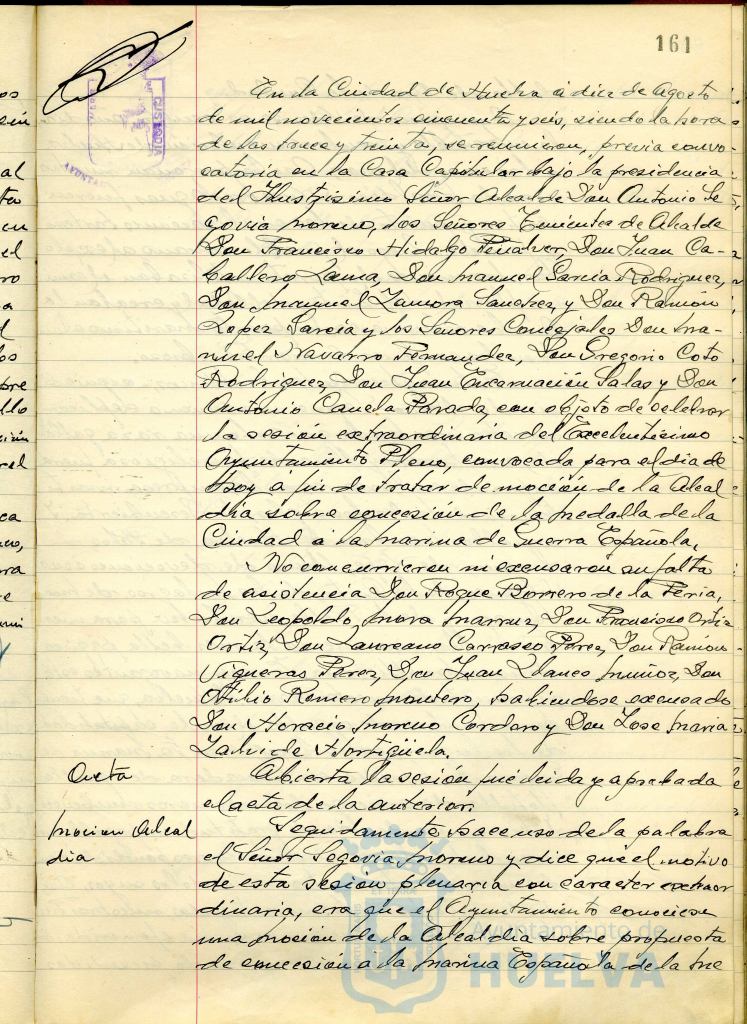 161
En la Ciudad de Huelva á diez de Agosto
de mil novecientos cincuenta y seis, siendo la hora
de las trece y treinta, se reunieron, previa convo-
catoria en la Casa Capitular bajo la presidencia
del Ilustrisimo Señor Alcalde Don Antonio Se
govia Moreno, los Señores Tenientes de Alcalde
Don Francisco Hidalgo Peñalver, Don Juan Ca-
ballero Lama, Don Manuel Garcia Rodriguez,
Don Manuel Zamora Sanchez, y Don Ramón
Lopez Garcia y los Señores Concejales Don Ma-
nuel Navarro Fernandez, Don Gregorio Coto
Rodriguez, Don Juan Encarnación Salas y Don
Antonio Canela Parada, con objeto de celebrar
la sesión extraordinaria del Excelentisimo
Ayuntamiento Pleno, convocada para el dia de
hoy a fin de tratar de moción de la Alcal
dia sobre concesión de la Medalla de la
Ciudad á la Marina de Guerra Española.
No concurrieron ni excusaron su falta
de asistencia Don Roque Borrero de la Feria,
Don Leopoldo Mora Don Francisco Ortiz
Ortiz, Don Laureano Carrasco Perez, Don Ramón
Vigueras Perez, Don Juan Llanes Muñoz, Don
Otilio Romero Montero, habiendose excusado
Don Horacio Moreno Cordero y Don Jose Maria
Zalvide Hortigüela.
Acta
Abierta la sesión fué leida y aprobada
el acta de la anterior.
Mocion Alcal
dia
Seguidamente hace uso de la palabra
el Señor Segovia Moreno y dice que el motivo
de esta sesión plenaria con caracter extraor
dinaria, era que el Ayuntamiento conociese
una moción de la Alcaldia sobre propuesta
de concesión á la Marina Española de la Me
Ayuntamiento de
HUELVA